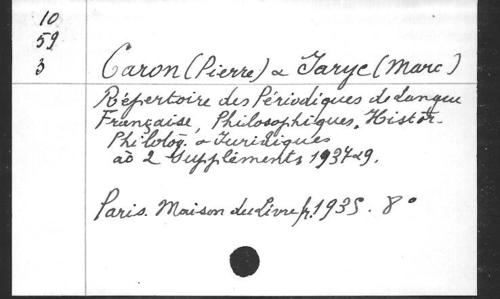 10
59
3
Caron (Pierre) & Jaryc (Marc)
Répertoire des Périodiques de langue
Française, Philosophiques, Histor-
Philolog. & Juridiques
ad 2 Suppléments 1937 & 9.
Paris. Maison du Livre fr. 1935. 8°